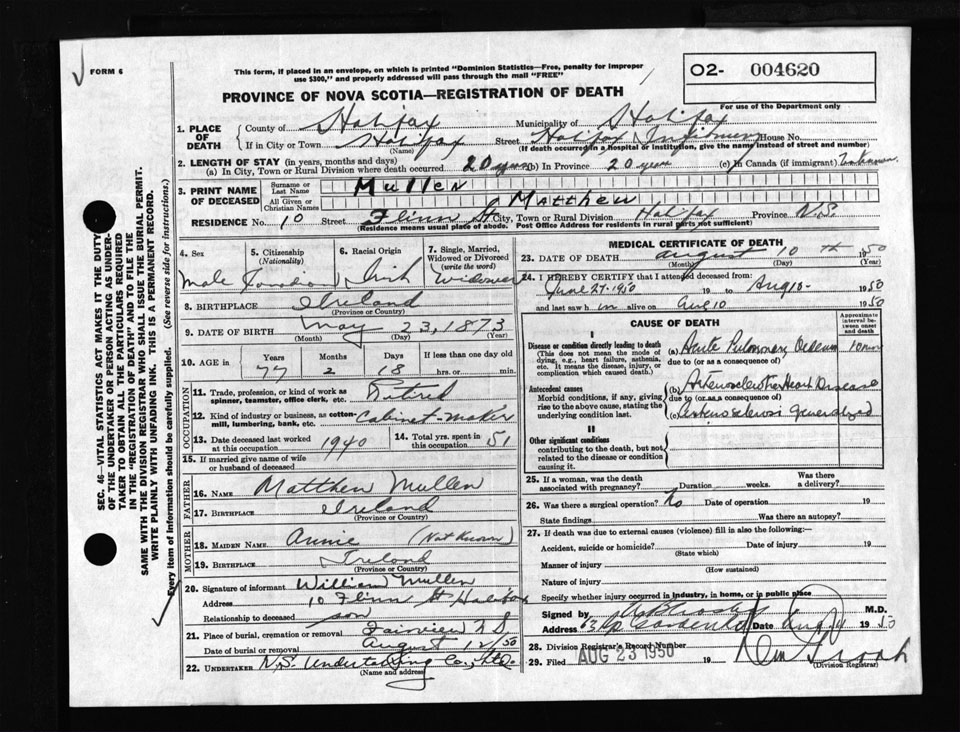 FORM 6
This form, if placed in an envelope, on which is printed "Dominion Statistics—Free, penalty for improper
use $300," and properly addressed will pass through the mail "FREE"
O2- 004620
For use of the Department only
PROVINCE OF NOVA SCOTIA—REGISTRATION OF DEATH
SEC. 46—VITAL STATISTICS ACT MAKES IT THE DUTY
OF THE UNDERTAKER OR PERSON ACTING AS UNDER-
TAKER TO OBTAIN ALL THE PARTICULARS REQUIRED
IN THE "REGISTRATION OF DEATH" AND TO FILE THE
SAME WITH THE DIVISION REGISTRAR WHO SHALL ISSUE THE BURIAL PERMIT.
WRITE PLAINLY WITH UNFADING INK. THIS IS A PERMANENT RECORD.
Every item of Information should be carefully supplied. (See reverse side for instructions.)
1. PLACE OF DEATH
County of Halifax Municipality of Halifax
If in City or Town Halifax Street Halifax Infirmary House No.
(Name) (If death occurred in a hospital or institution, give the name instead of street and number)
2. LENGTH OF STAY (in years, months and days)
(a) In City, Town or Rural Division where death occurred 20 years (b) In Province 20 years (c) In Canada (if immigrant) Unknown
3. PRINT NAME OF DECEASED
Surname or Last Name Mullen
All Given or Christian Names Matthew
RESIDENCE No. 10 Street Flinn St City, Town or Rural Division Halifax Province N.S.
(Residence means usual place of abode. Post Office Address for residents in rural parts not sufficient)
4. Sex
male
5. Citizenship (Nationality)
Canadian
6. Racial Origin
Irish
7. Single, Married, Widowed or Divorced (write the word)
Widower
8. BIRTHPLACE Ireland
(Province or Country)
9. DATE OF BIRTH May 23, 1873
(Month) (Day) (Year)
10. AGE in Years Months Days If less than one day
77 2 18 hrs. or min.
OCCUPATION
11. Trade, profession, or kind of work as spinner, teamster, office clerk, etc. Retired
12. Kind of industry or business, as cotton-mill, lumbering, bank, etc. Cabinet-Maker
13. Date deceased last worked at this occupation 1940
14. Total yrs. spent in this occupation 51
15. If married give name of wife or husband of deceased
FATHER
16. NAME Matthew Mullen
17. BIRTHPLACE Ireland
(Province or Country)
MOTHER
18. MAIDEN NAME Annie (Not Known)
19. BIRTHPLACE Ireland
(Province or Country)
20. Signature of informant William Mullen
Address 10 Flinn St Halifax
Relationship to deceased son
21. Place of burial, cremation or removal Fairview N S
Date of burial or removal August 12/50
22. UNDERTAKER N.S. Undertaking Co., Ltd.
(Name and address)
MEDICAL CERTIFICATE OF DEATH
23. DATE OF DEATH August 10th 1950
(Month) (Day) (Year)
24. I HEREBY CERTIFY that I attended deceased from:
June 27-1950 19 to Aug 10- 1950
and last saw him alive on Aug 10 1950
CAUSE OF DEATH
Approximate interval between onset and death
I
Disease or condition directly leading to death
(This does not mean the mode of dying, e.g., heart failure, asthenia, etc. It means the disease, injury, or complication which caused death.)
(a) Acute Pulmonary Oedema 10 min
due to (or as a consequence of)
Antecedent causes
Morbid conditions, if any, giving rise to the above cause, stating the underlying condition last.
(b) Arteriosclerotic Heart Disease
due to (or as a consequence of)
(c) Arteriosclerosis generalized
II
Other significant conditions contributing to the death, but not related to the disease or condition causing it.
25. If a woman, was the death associated with pregnancy? Duration weeks. Was there a delivery?
26. Was there surgical operation? No Date of operation 19
State findings Was there an autopsy?
27. If death was due to external causes (violence) fill in also the following:—
Accident, suicide or homicide? Date of injury 19
(State which)
Manner of injury
(How sustained)
Nature of injury
Specify whether injury occurred in industry, in home, or in public place
Signed by M.D.
Address Date Aug 1950
28. Division Registrar's Record Number
29. Filed AUG 23 1950 19
(Division Registrar)